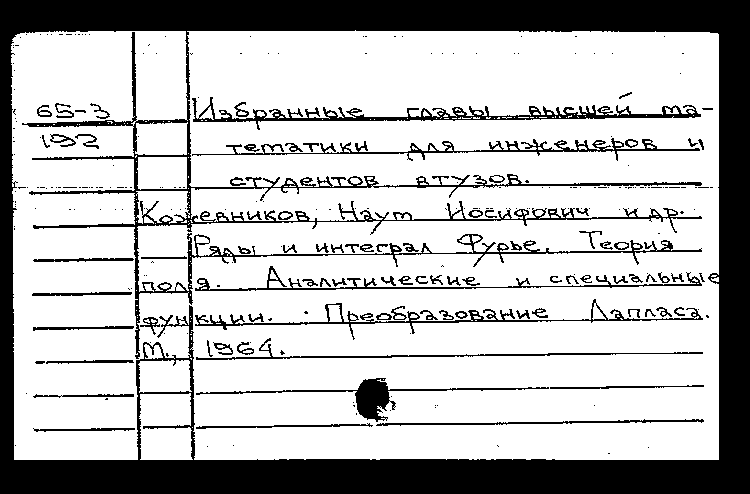 65-3 Избранные главы высшей ма-
192 тематики для инженеров и
студентов втузов.
Кожевников, Наум Иосифович и др.
Ряды и интеграл Фурье. Теория
поля. Аналитические и специальные
функции. Преобразование Лапласа.
М., 1964.